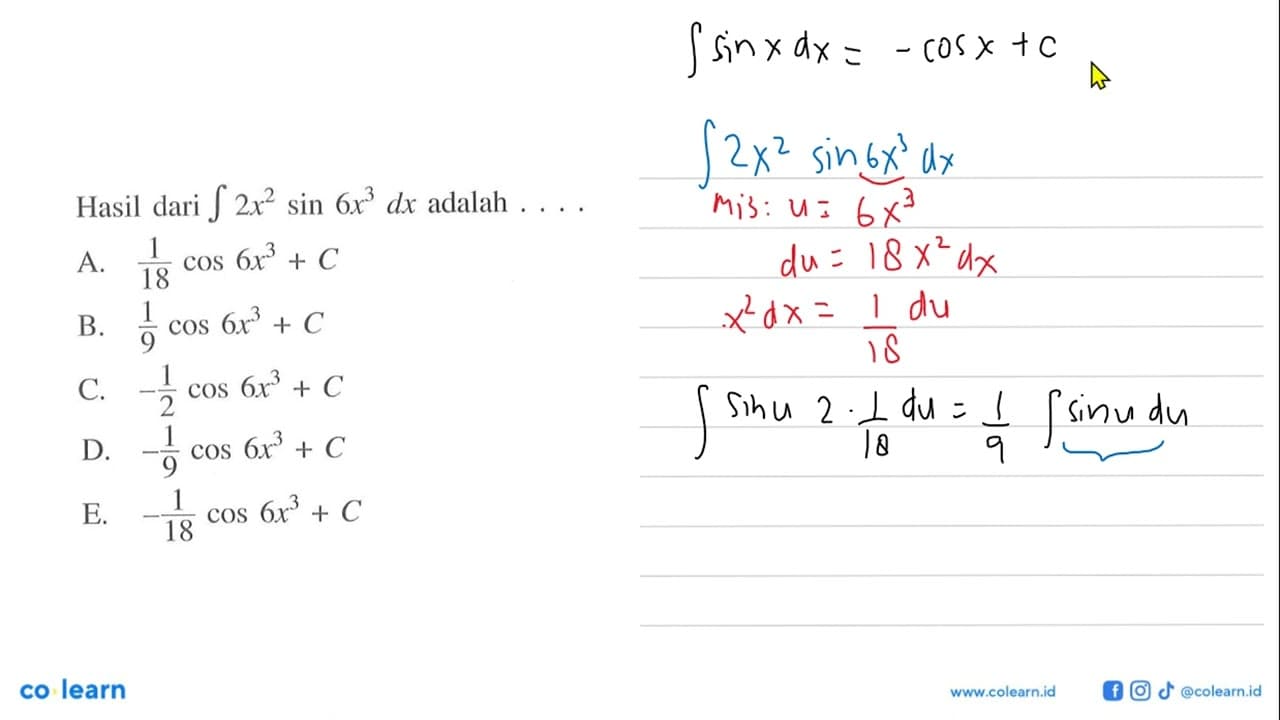 Hasil dari ∫ 2x² sin 6x³ dx adalah . . . .
A. 1/18 cos 6x³ + C
B. 1/9 cos 6x³ + C
C. -1/2 cos 6x³ + C
D. -1/9 cos 6x³ + C
E. -1/18 cos 6x³ + C
∫ sin x dx = - cos x + c
∫ 2x² sin 6x³ dx
Mis: u = 6x³
du = 18x² dx
x² dx = 1/18 du
∫ sin u 2 · 1/18 du = 1/9 ∫ sin u du
co learn
www.colearn.id
@colearn.id